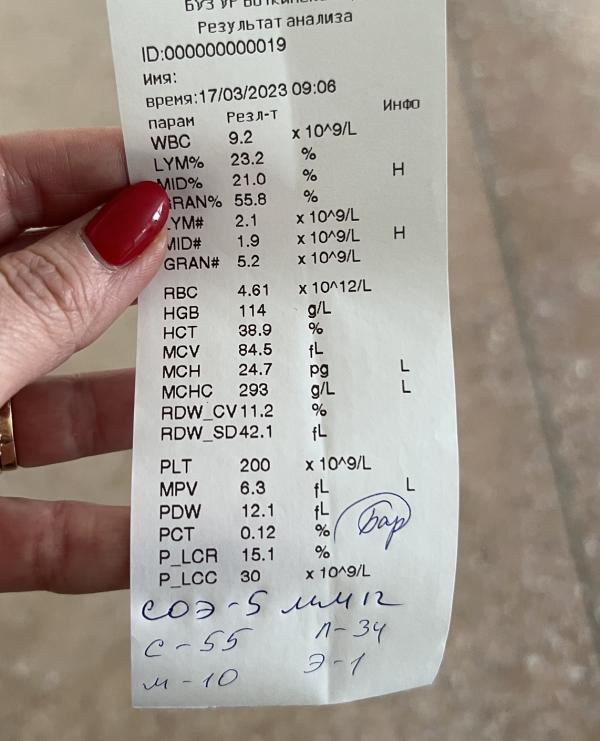 БУЗ УР
Результат анализа
ID:000000000019
Имя:
время:17/03/2023 09:06
парам Резл-т Инфо
WBC 9.2 x 10^9/L
LYM% 23.2 %
MID% 21.0 % H
GRAN% 55.8 %
LYM# 2.1 x 10^9/L
MID# 1.9 x 10^9/L H
GRAN# 5.2 x 10^9/L
RBC 4.61 x 10^12/L
HGB 114 g/L
HCT 38.9 %
MCV 84.5 fL
MCH 24.7 pg L
MCHC 293 g/L L
RDW_CV 11.2 %
RDW_SD 42.1 fL
PLT 200 x 10^9/L
MPV 6.3 fL L
PDW 12.1 fL
PCT 0.12 % Бар
P_LCR 15.1 %
P_LCC 30 x 10^9/L
СОЭ-5 мм
с-55 л-34
м-10 э-1